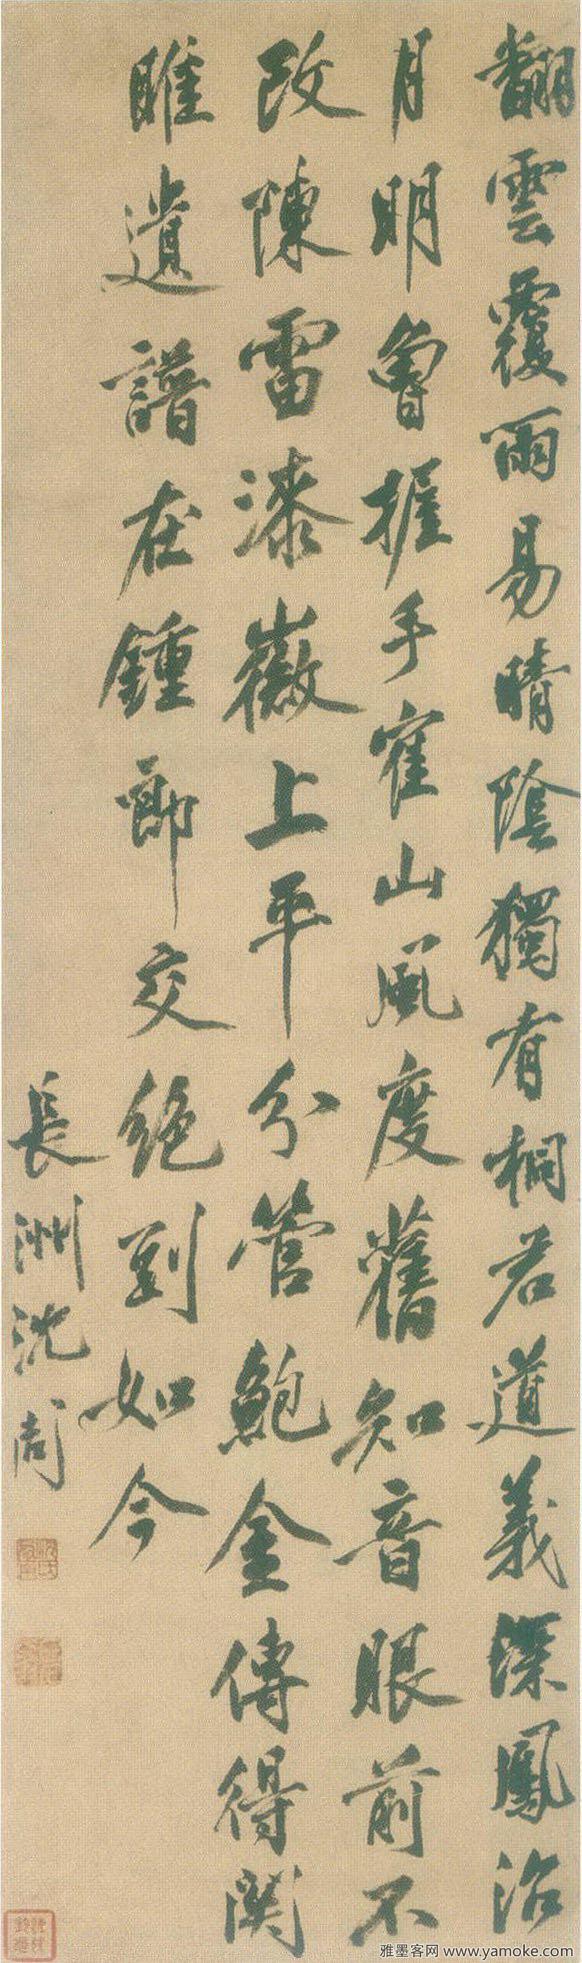 翻雲覆雨易晴陰獨有桐君道義深鳳沼
月明曾握手寉山風度舊知音眼前不
改陳雷漆徽上平分管鮑金傳得関
雎遺譜在鍾郎交絕到如今
長洲沈周
雅墨客网 www.yamoke.com